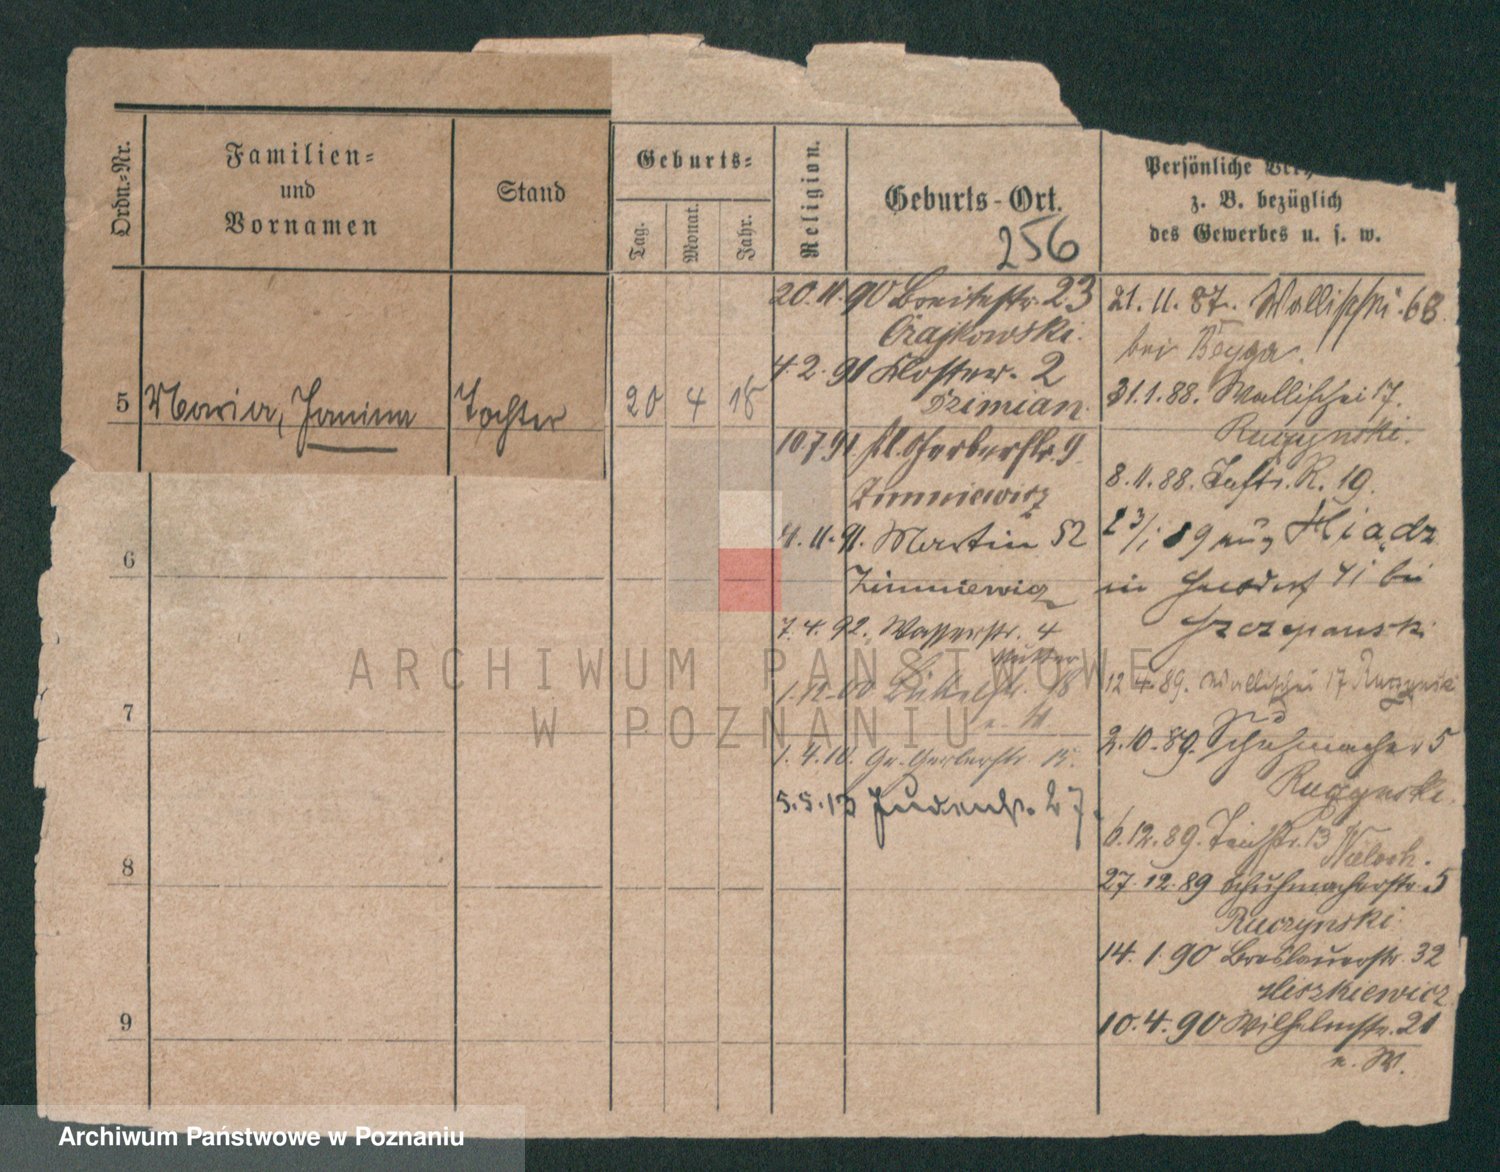 Ordn.-Nr.
Familien-
und
Vornamen
Stand
Geburts-
Tag.
Monat.
Jahr.
Religion.
Geburts-Ort.
256
Persönliche
z. B. bezüglich
des Gewerbes u. s. w.
5 Maria, Janina Tochter 20 4 18
6
7
8
9
20.11.90 Breitestr. 23
Czajkowski.
4.2.91 Kloster. 2
Dzimian.
10.7.91 kl. Gerberstr. 9
Zimniewicz
4.11.91. Martin 52
Zimniewicz
7.4.92. Wasserstr. 4
Mutter
1.12.00 Büttelstr. 18
1.4.10. Gr. Gerberstr. 15.
5.5.13 Judenstr. 27.
21.11.87. Wallischei. 68.
bei Beyga.
31.1.88. Wallischei 17.
Ruczynski.
8.11.88. Lastr. R. 19.
23/1 89 aus Hiądz
in 41 bei
Szczepanski
12.4.89. Wallischei 17 Ruczynski
2.10.89. Schuhmacher 5
Ruczynski.
6.12.89. 13
Wieloch.
27.12.89 Schuhmacherstr. 5
Ruczynski.
14.1.90 Breslauerstr. 32
10.4.90 Wilhelmstr. 21
n. W.
ARCHIWUM PAŃSTWOWE
W POZNANIU
Archiwum Państwowe w Poznaniu